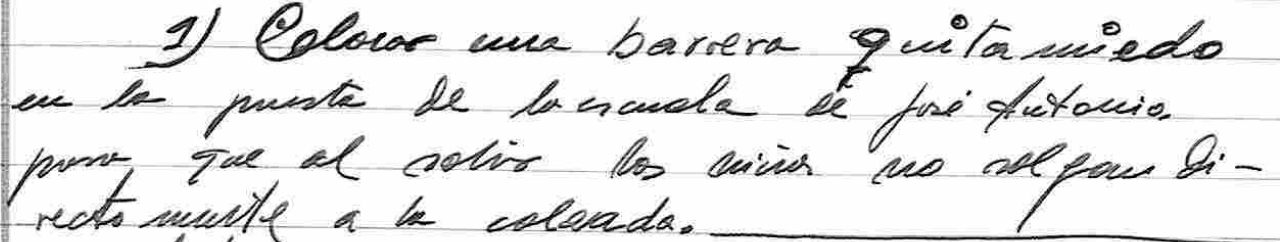 1) Colocar una barrera quitamiedo
en la puerta de la escuela de José Antonio.
para que al salir los niños no salgan di-
rectamente a la calzada.